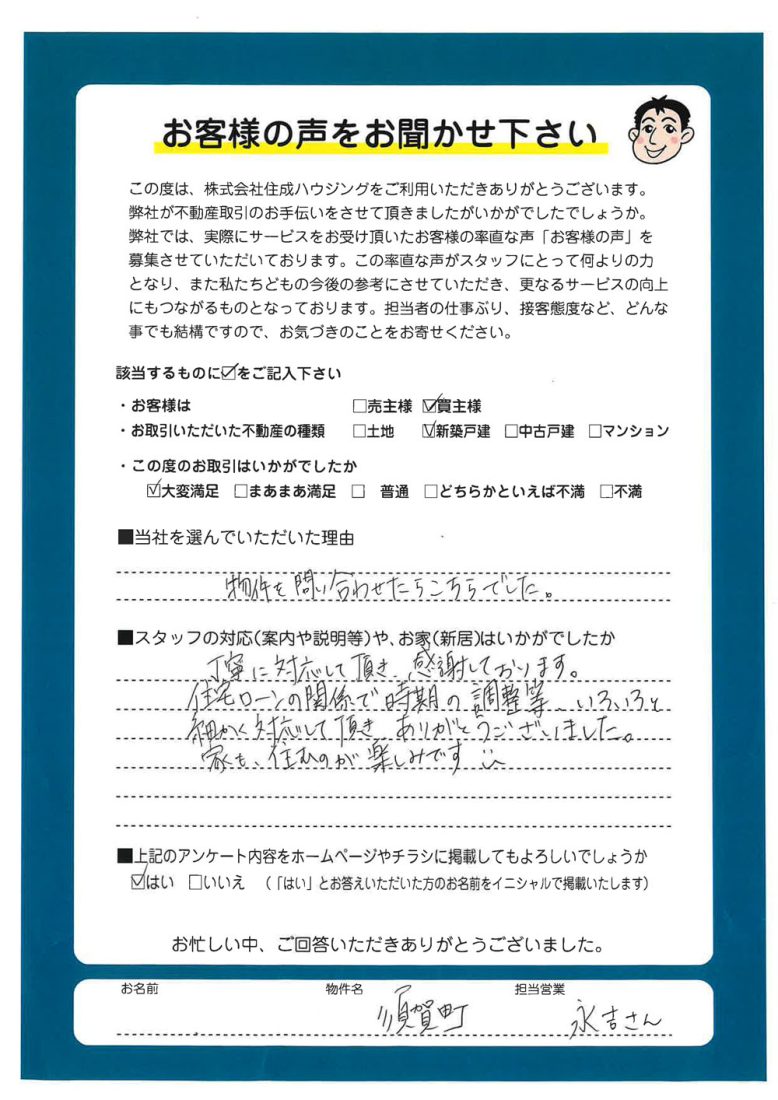 お客様の声をお聞かせ下さい
この度は、株式会社住成ハウジングをご利用いただきありがとうございます。
弊社が不動産取引のお手伝いをさせて頂きましたがいかがでしたでしょうか。
弊社では、実際にサービスをお受け頂いたお客様の率直な声「お客様の声」を
募集させていただいております。この率直な声がスタッフにとって何よりの力
となり、また私たちどもの今後の参考にさせていただき、更なるサービスの向上
にもつながるものとなっております。担当者の仕事ぶり、接客態度など、どんな
事でも結構ですので、お気づきのことをお寄せください。
該当するものに☑をご記入下さい
・お客様は □売主様 ☑買主様
・お取引いただいた不動産の種類 □土地 ☑新築戸建 □中古戸建 □マンション
・この度のお取引はいかがでしたか
☑大変満足 □まあまあ満足 □ 普通 □どちらかといえば不満 □不満
■当社を選んでいただいた理由
物件を問い合わせたらこちらでした。
■スタッフの対応(案内や説明等)や、お家(新居)はいかがでしたか
丁寧に対応して頂き、感謝しております。
住宅ローンの関係で時期の調整等、いろいろと
細かく対応して頂き、ありがとうございました。
家も、住むのが楽しみです
■上記のアンケート内容をホームページやチラシに掲載してもよろしいでしょうか
☑はい □いいえ (「はい」とお答えいただいた方のお名前をイニシャルで掲載いたします)
お忙しい中、ご回答いただきありがとうございました。
お名前 物件名 須賀町 担当営業 永吉さん